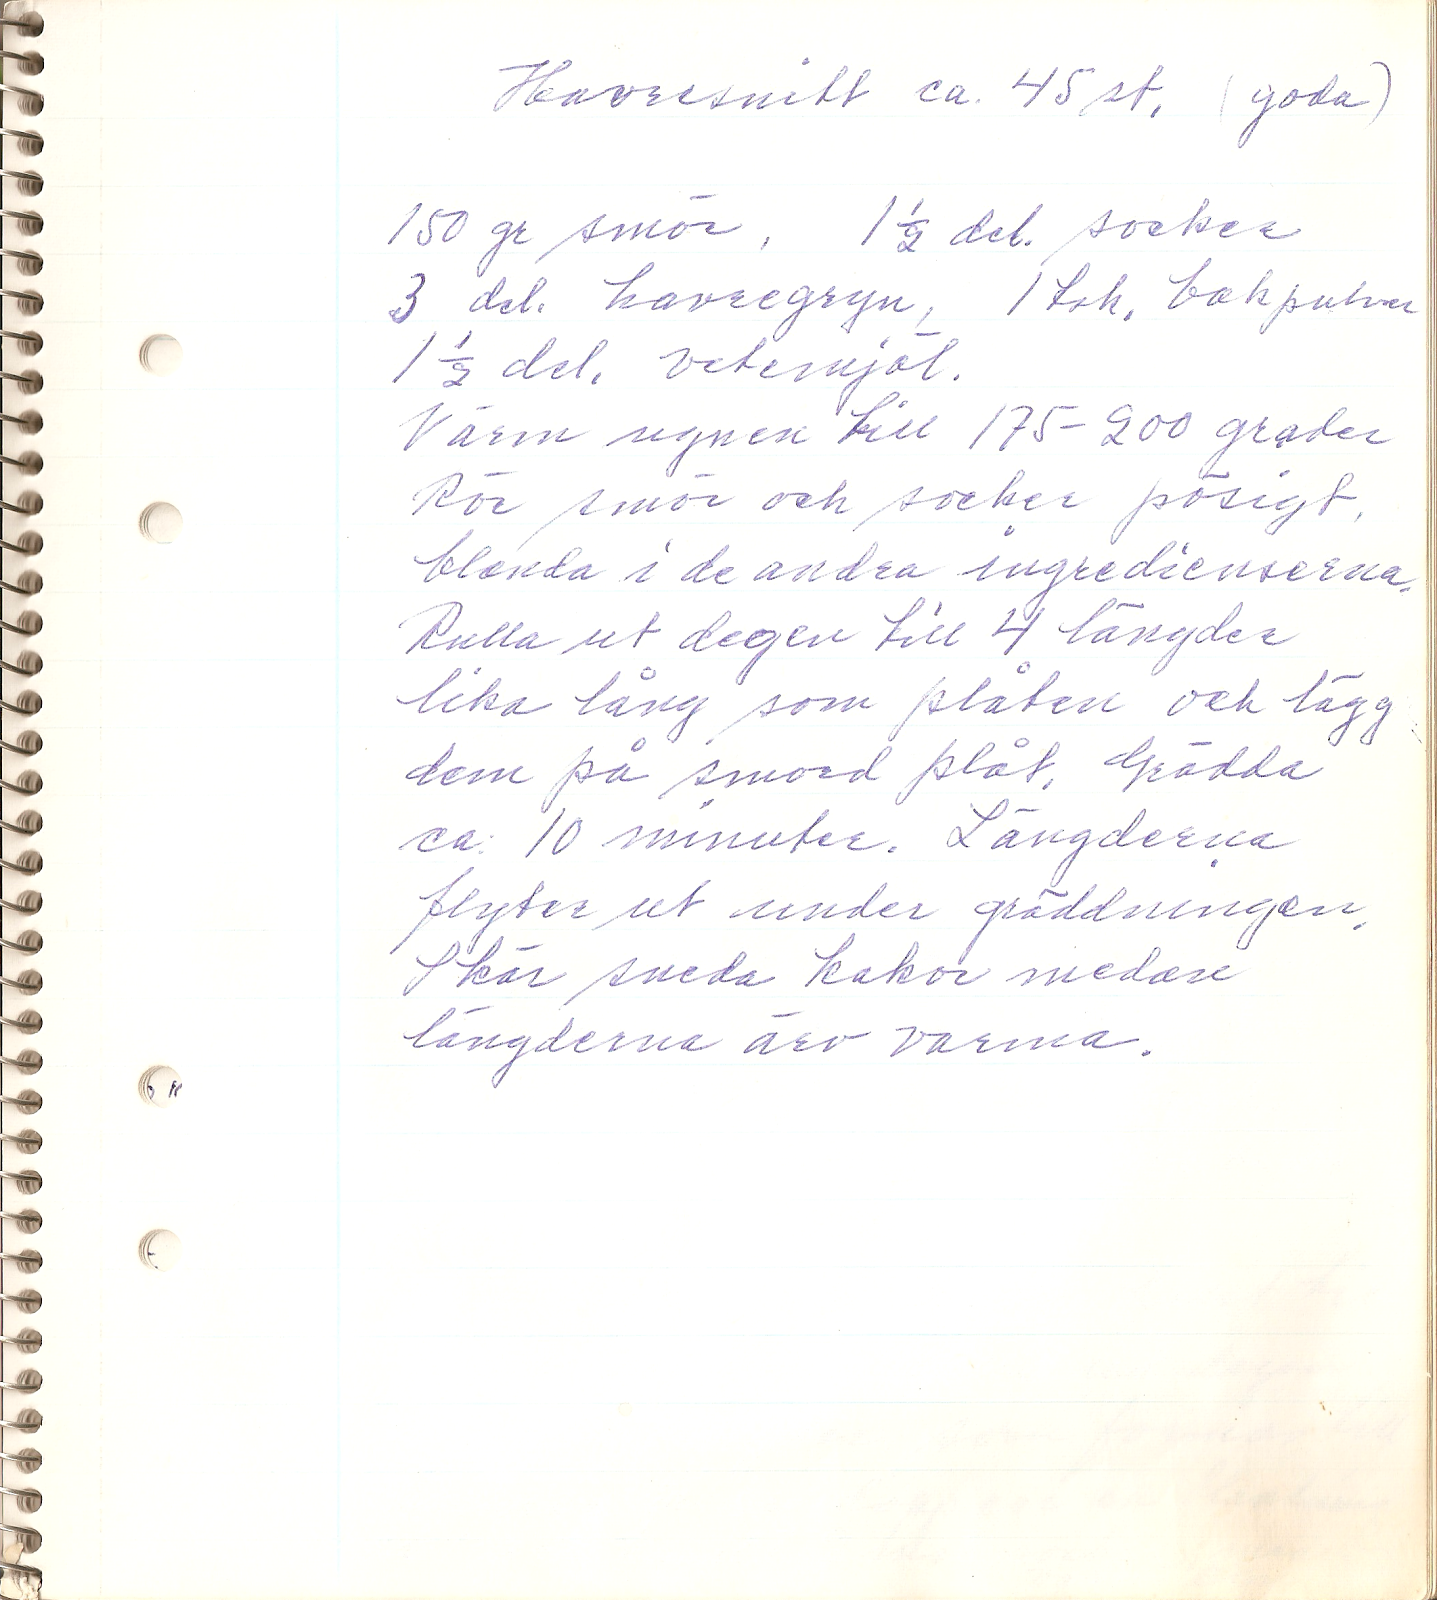 Havresnitt ca. 45 st. (goda)
150 gr smör, 1 1/2 del. socker
3 del. havregryn, 1 tsk. bakpulver
1 1/2 del. vetemjöl.
Värm ugnen till 175-200 grader
Rör smör och socker pösigt,
blanda i de andra ingredienserna.
Rulla ut degen till 4 längder
lika lång som plåten och lägg
dem på smord plåt. Grädda
ca. 10 minuter. Längderna
flyter ut under gräddningen.
Skär sneda kakor medan
längderna äro varma.